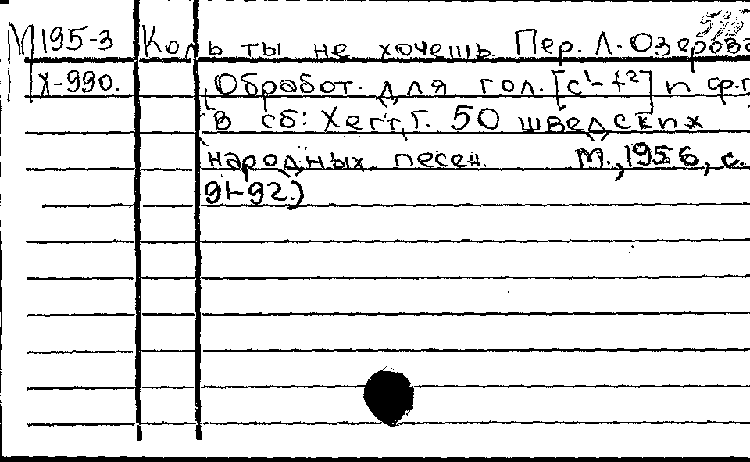 М195-3 Коль ты не хочешь. Пер. Л. Озерова
Х-990. (Обработ. для гол. [c¹-f²] и ф.п.
в сб: Хегг, Г. 50 шведских
народных песен. М., 1956, с.
91-92.)